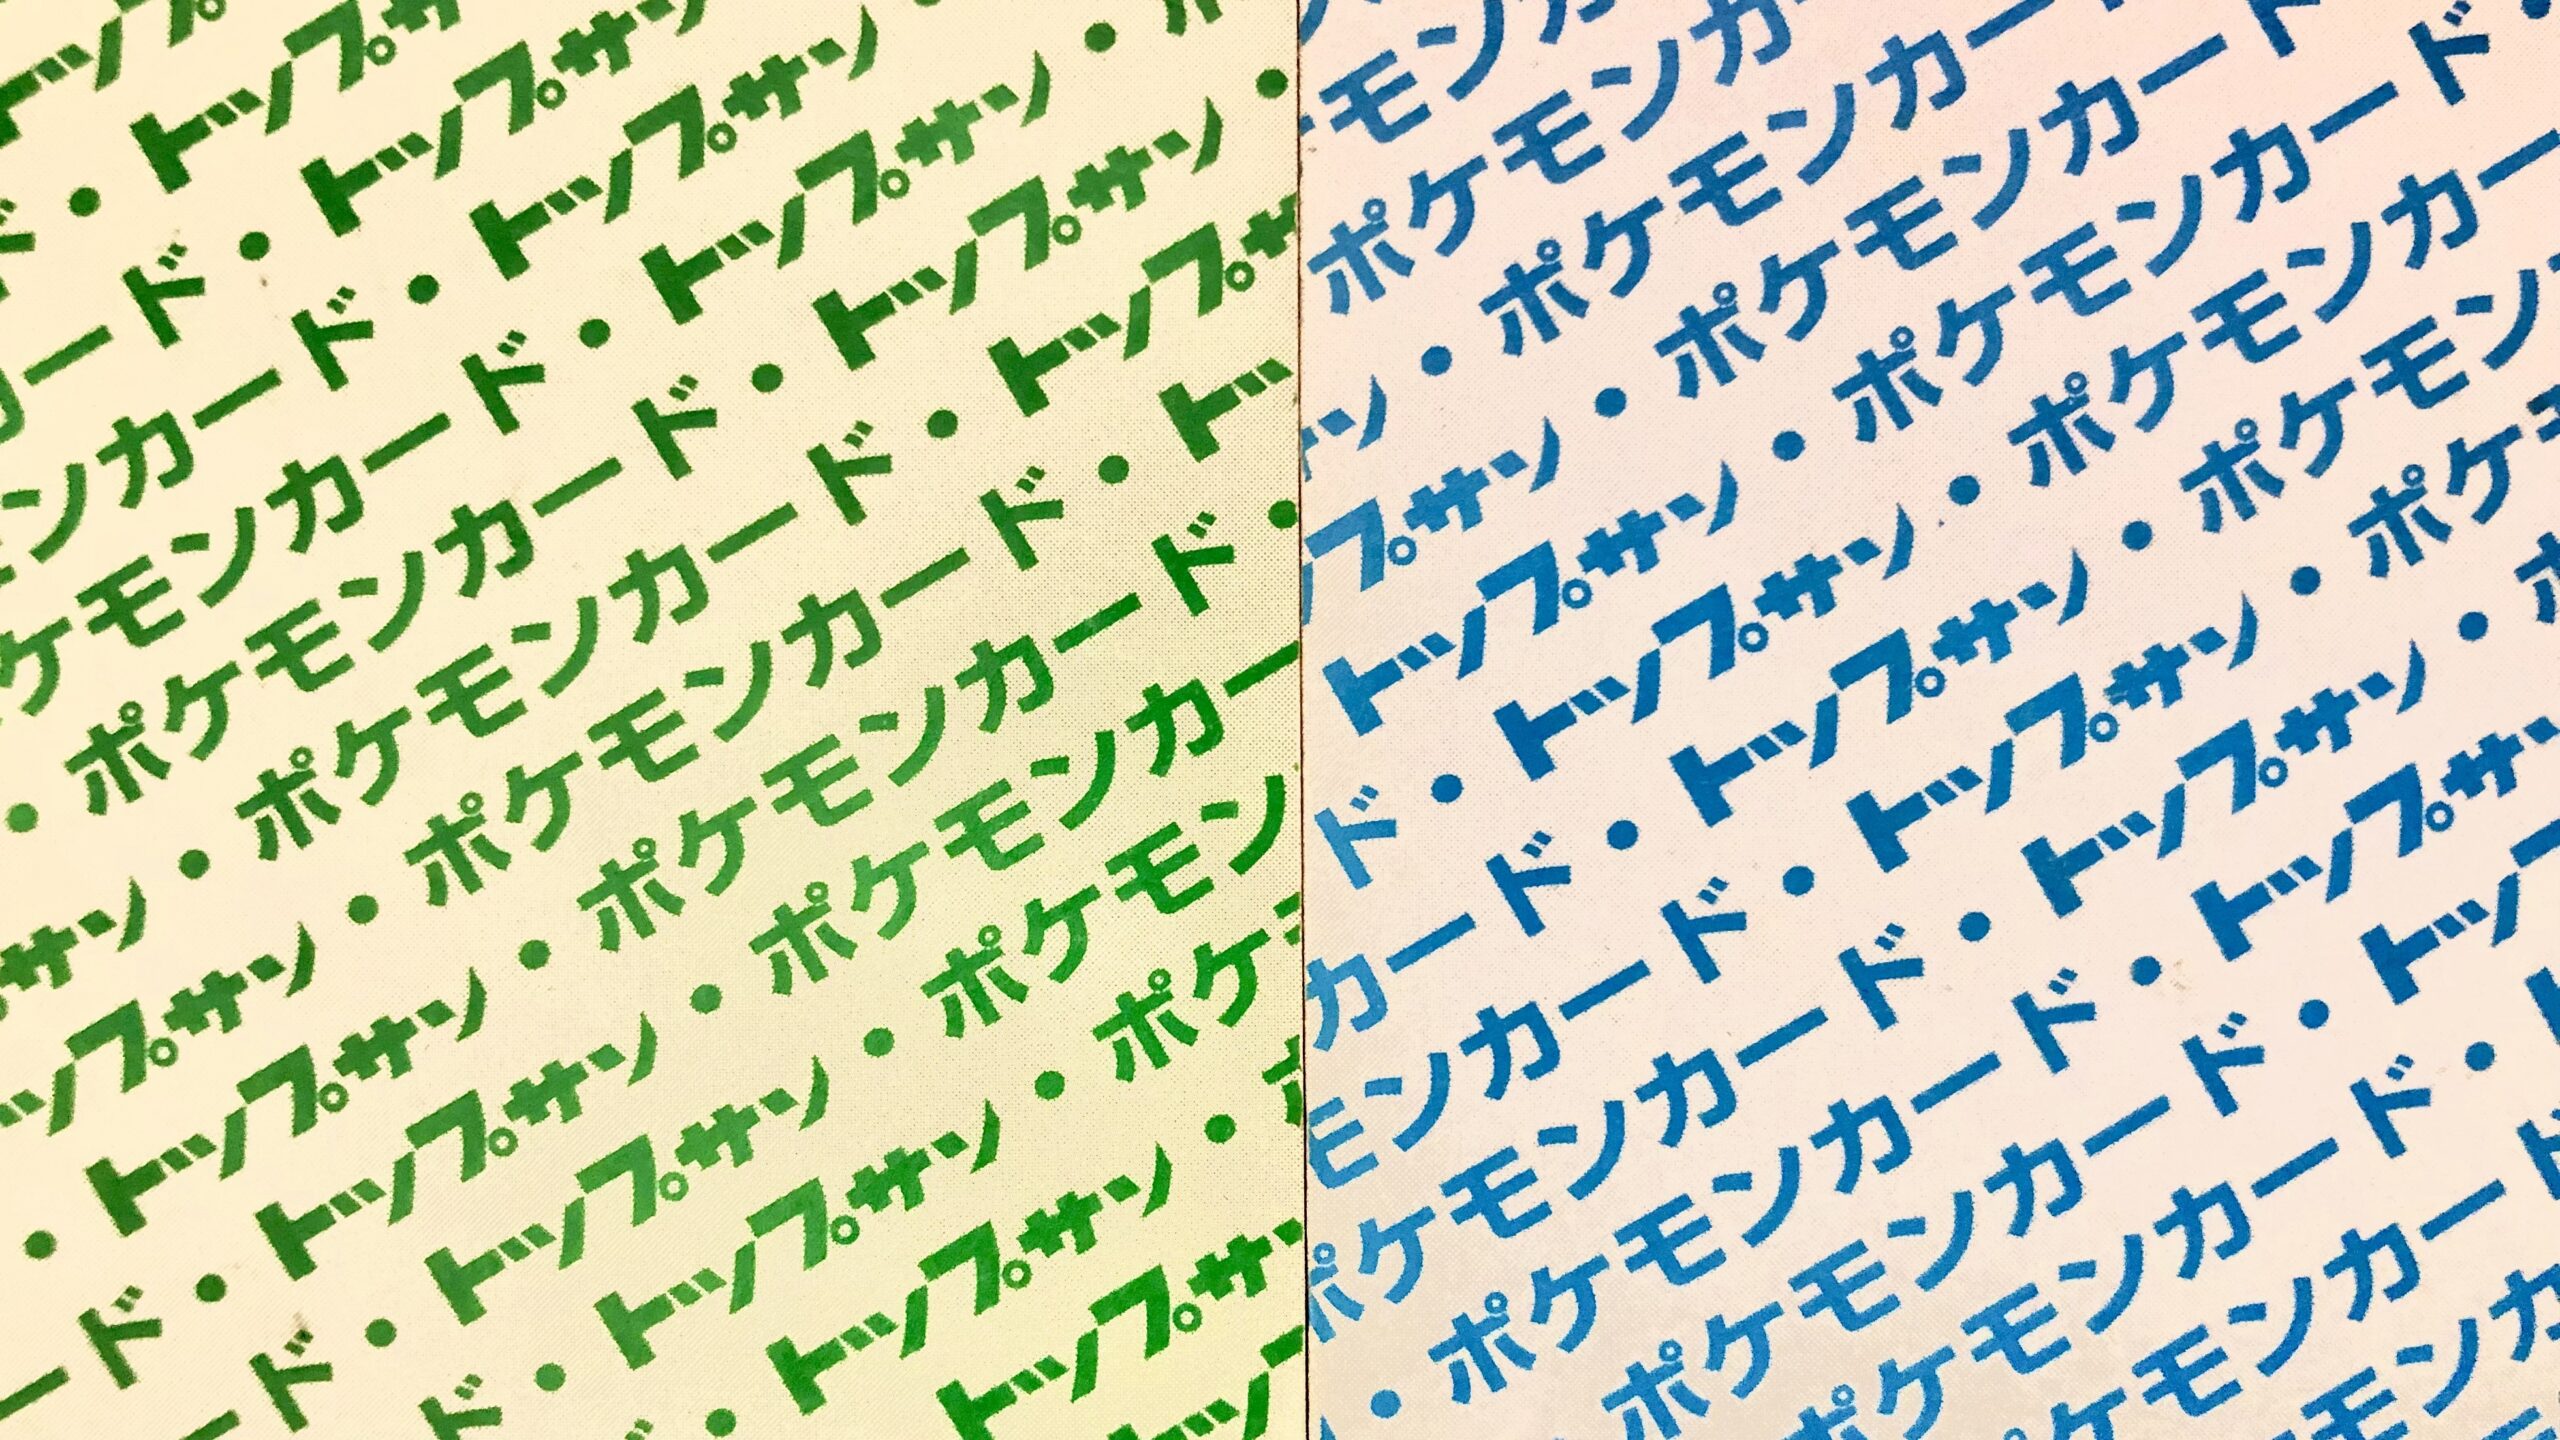 トップ
ド・トップサ
カード・トップサン
モンカード・トップサン・
ケモンカード・トップサン・ポ
・ポケモンカード・トップサン・
サン・ポケモンカード・トップサ
ップサン・ポケモンカード・トッ
・トップサン・ポケモンカード・
ード・トップサン・ポケモンカー
ード・トップサン・ポケモン
ド・トップサン・ポケ
・トップサン・ポ
トップサ
トッ
モンカ
ポケモンカー
ン・ポケモンカー
プサン・ポケモンカード
トップサン・ポケモンカード・
ド・トップサン・ポケモンカー
カード・トップサン・ポケモン
モンカード・トップサン・ポケ
ポケモンカード・トップサン・ポ
・ポケモンカード・トップサン
ポケモンカード・トップ
ポケモンカード・ト
ケモンカード
モンカ